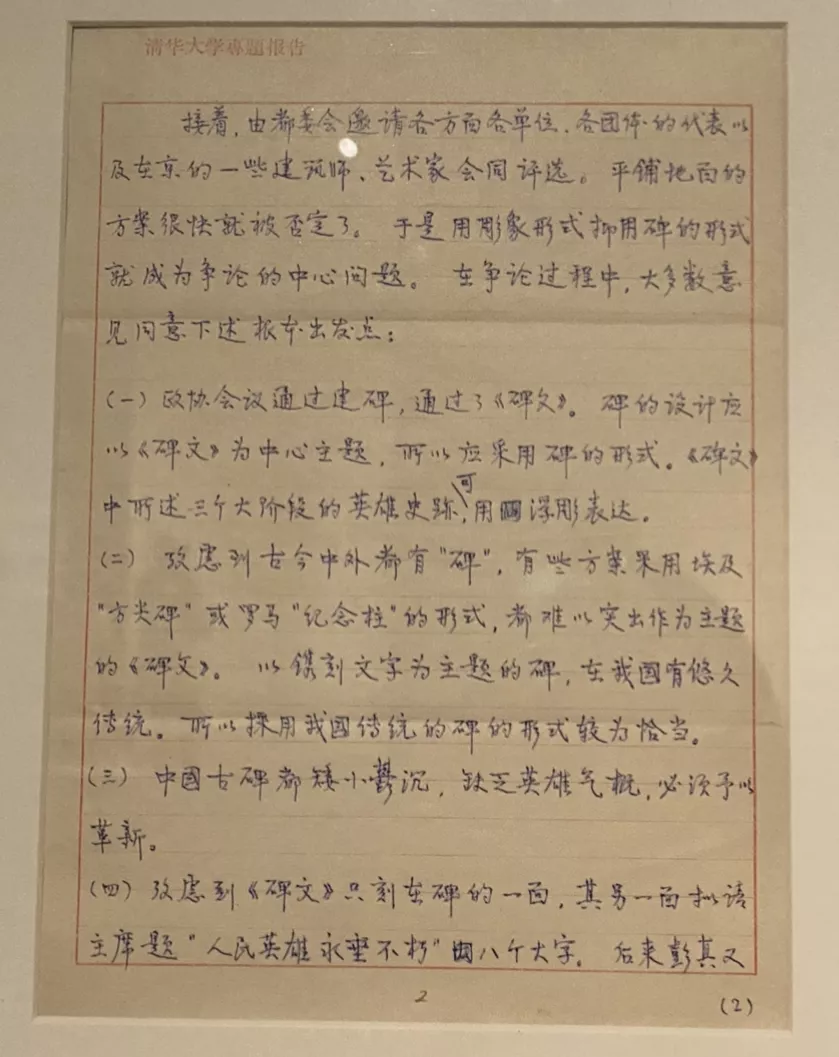 清华大学專題报告
接着，由都委会邀请各方面各单位、各团体的代表以
及在京的一些建筑师、艺术家会同评选。平铺地面的
方案很快就被否定了。于是用彫象形式抑用碑的形式
就成为争论的中心问题。在争论过程中，大多数意
见同意下述根本出发点：
(一) 政协会议通过建碑，通过了《碑文》。碑的设计应
以《碑文》为中心主题，所以应采用碑的形式。《碑文》
中所述三个大阶段的英雄史跡，可用浮彫表达。
(二) 攷虑到古今中外都有"碑"，有些方案采用埃及
"方尖碑"或罗马"纪念柱"的形式，都难以突出作为主题
的《碑文》。以镌刻文字为主题的碑，在我國有悠久
传统。所以採用我國传统的碑的形式较为恰当。
(三) 中國古碑都矮小鬱沉，缺乏英雄气概，必须予以
革新。
(四) 攷虑到《碑文》只刻在碑的一面，其另一面拟请
主席题"人民英雄永垂不朽"八个大字。后来彭真又
2
(2)